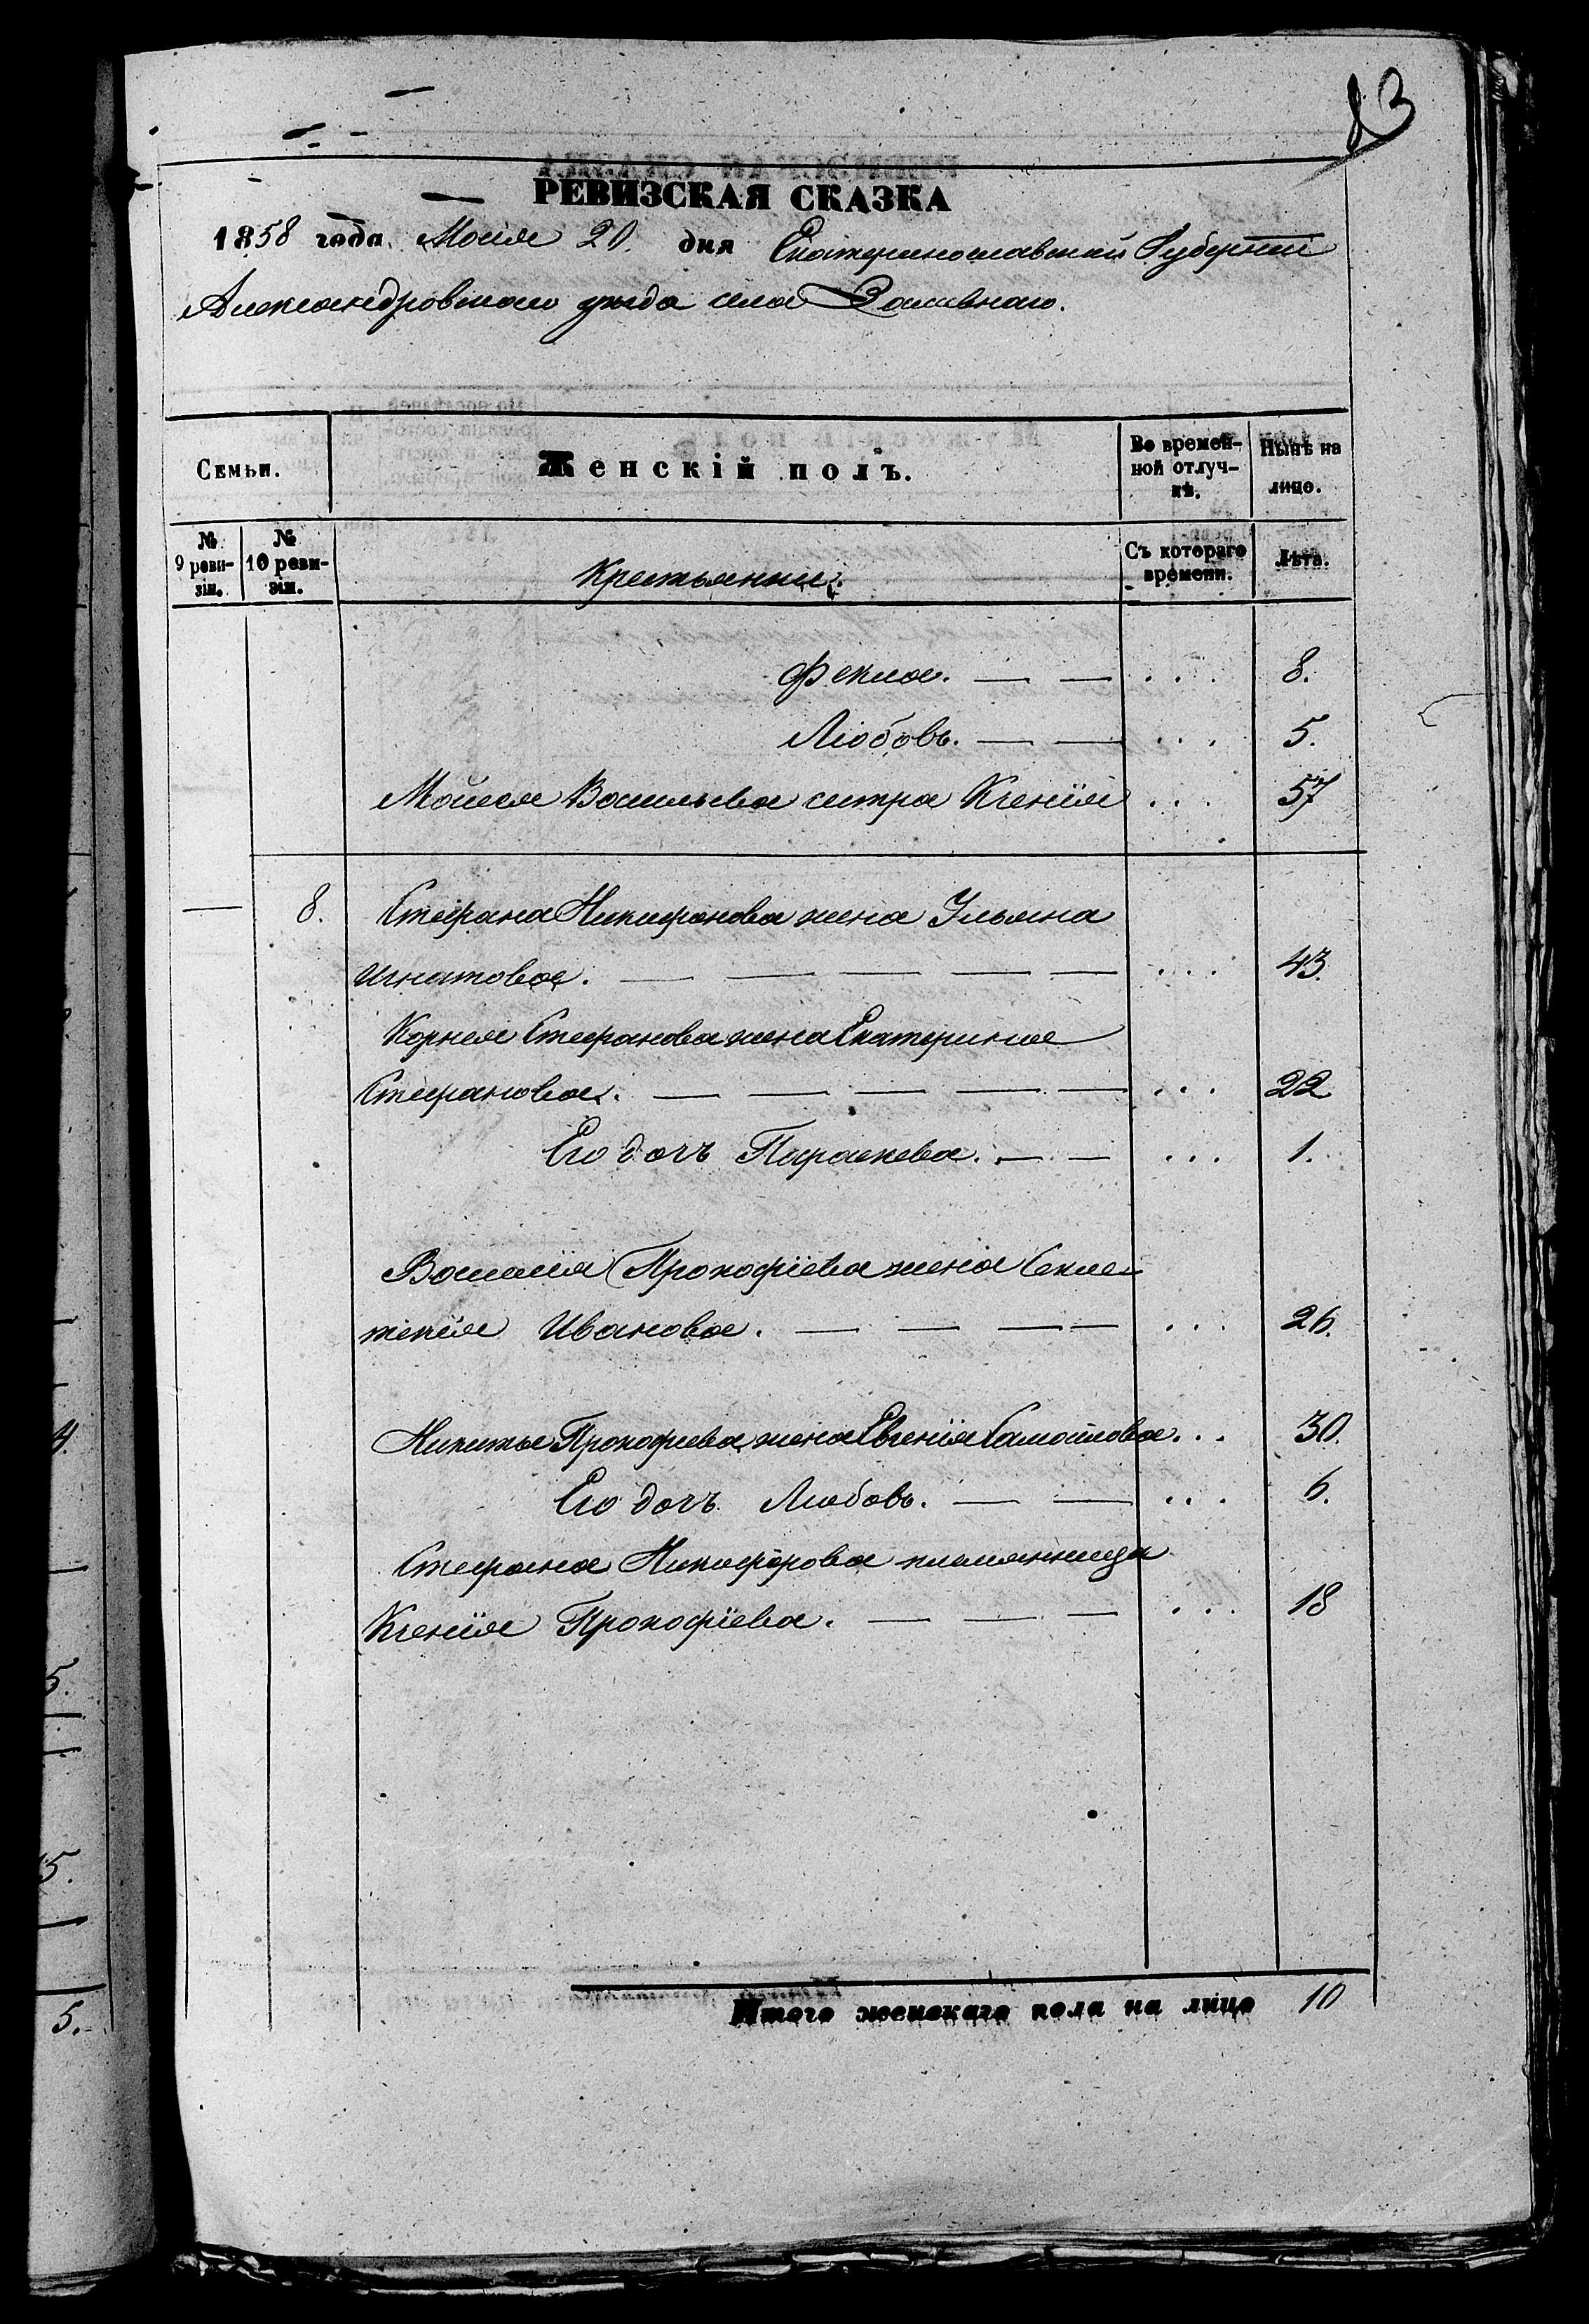 83
РЕВИЗСКАЯ СКАЗКА
1858 года Маія 20. дня Екатеринославской Губерніи
Александровскаго уѣзда села Заливнаго.
Семьи.
Женскій полъ.
Во времен-
ной отлуч-
кѣ.
Нынѣ на
лицо.
№
9 реви-
зіи.
№
10 реви-
зіи.
Крестьянки.
Съ котораго
времени.
Лѣта.
Фекла. — — . . . 8.
Любовь. — — . . . 5.
Моисея Васильева сестра Ксенія . . . 57
— 8. Стефана Никифорова жена Ульяна
Игнатова. — — — — — . . . 43.
Корнея Стефанова жена Екатерина
Стефанова. — — — — — . . . 22
Его дочь Параскева. — — . . . 1.
Василія Прокофіева жена Секле-
тенія Иванова. — — — — . . . 26.
Никиты Прокофьева жена Евгенія Самойлова . . . 30.
Его дочь Любовь. — — . . . 6.
Стефана Никифорова племянница
Ксенія Прокофіева. — — — . . . 18
Итого женскаго пола на лицо 10